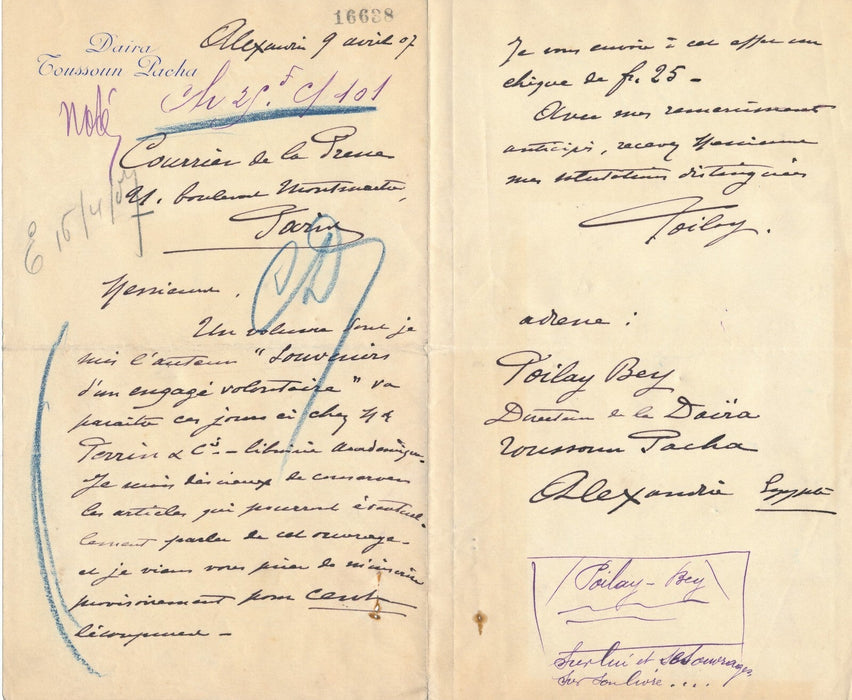 16638
Daira
Toussoun Pacha
Alexandrie 9 avril 07
Noté
Ch 25.F c/ 101
Courrier de la Presse
21, boulevard Montmartre,
Paris
E 15/4/07
Messieurs,
Un volume dont je
suis l'auteur "Souvenirs
d'un engagé volontaire" va
paraître ces jours ci chez MM
Perrin & Cie. - librairie académique.
Je suis désireux de conserver
les articles qui pourront éventuel-
lement parler de cet ouvrage -
et je viens vous prier de m'inscrire
provisoirement pour cent
découpures -
Je vous envoie à cet effet un
chèque de fr. 25 -
Avec mes remerciements
anticipés, recevez Messieurs
mes salutations distinguées
Poilay.
adresse :
Poilay Bey
Directeur de la Daïra
Toussoun Pacha
Alexandrie Egypte
Poilay-Bey
Sur lui et ses ouvrages
sur son livre....